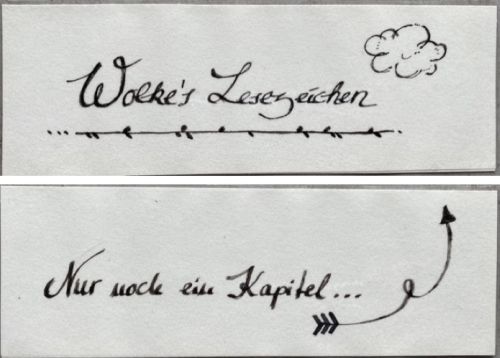 Wolke's Lesezeichen
Nur noch ein Kapitel...